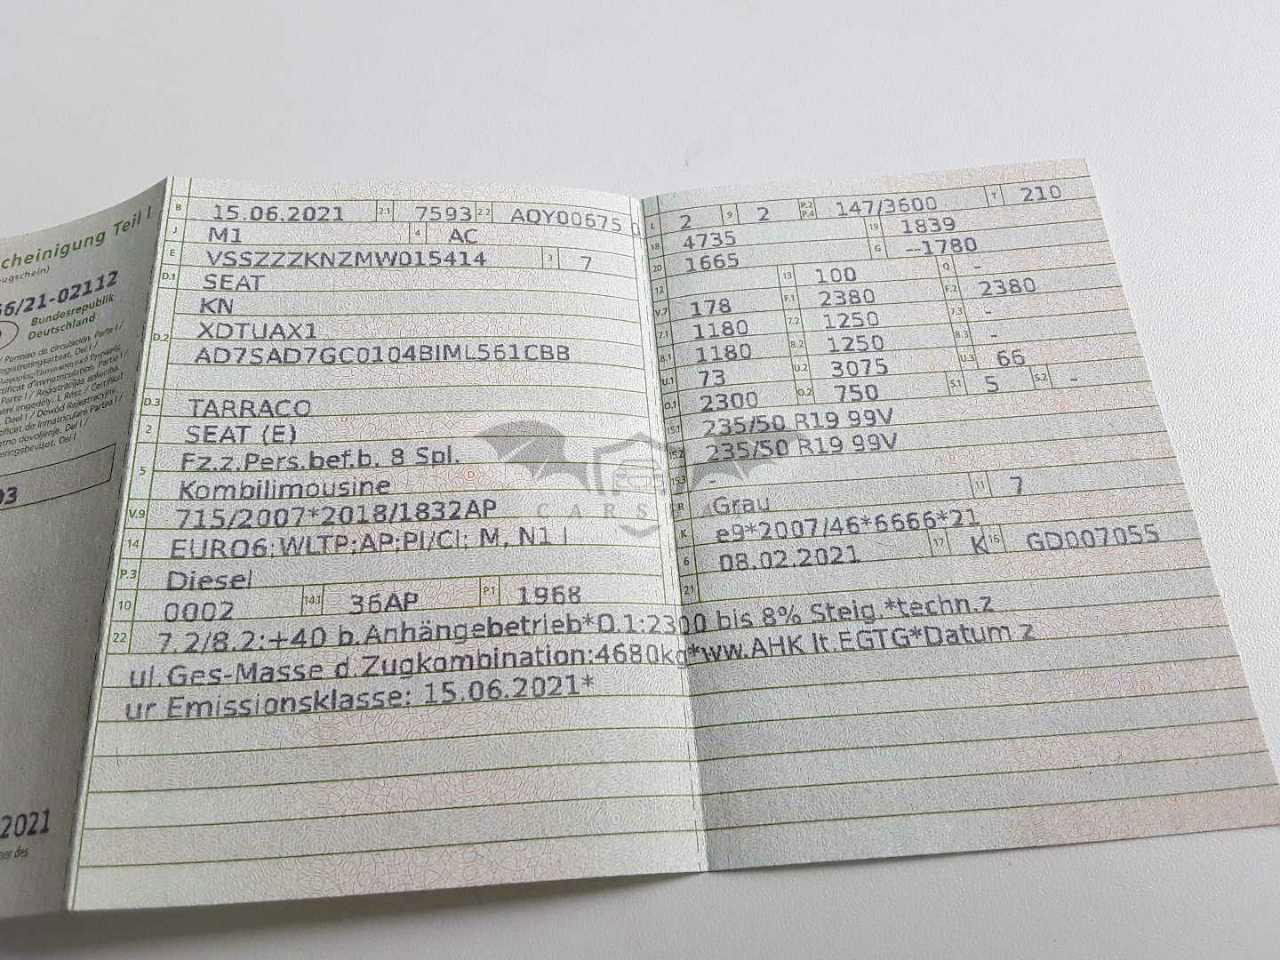 cheinigung Teil I
ugschein)
66/21-02112
Bundesrepublik
Deutschland
03
2021
B 15.06.2021 2.1 7593 2.2 AOY00675
J M1 4 AC
E VSSZZZKNZMW015414 3 7
D.1 SEAT
KN
D.2 XDTUAX1
AD7SAD7GC0104BIML561CBB
D.3 TARRACO
2 SEAT (E)
5 Fz.z.Pers.bef.b. 8 Spl.
Kombilimousine
V.9 715/2007*2018/1832AP
14 EURO6;WLTP;AP;PI/CI; M, N1 I
P.3 Diesel
10 0002 14.1 36AP P.1 1968
L 2 9 2 P.2 P.4 147/3600 T 210
18 4735 19 1839
20 1665 G --1780
12 13 100 Q -
V.7 178 F.1 2380 F.2 2380
7.1 1180 7.2 1250 7.3 -
8.1 1180 8.2 1250 8.3 -
U.1 73 U.2 3075 U.3 66
O.1 2300 O.2 750 S.1 5 S.2 -
15.1 235/50 R19 99V
15.2 235/50 R19 99V
15.3 -
R Grau 11 7
K e9*2007/46*6666*21
6 08.02.2021 17 K 16 GD007055
21
22 7.2/8.2:+40 b.Anhängebetrieb*O.1:2300 bis 8% Steig.*techn.z
ul.Ges-Masse d.Zugkombination:4680kg*ww.AHK lt.EGTG*Datum z
ur Emissionsklasse: 15.06.2021*